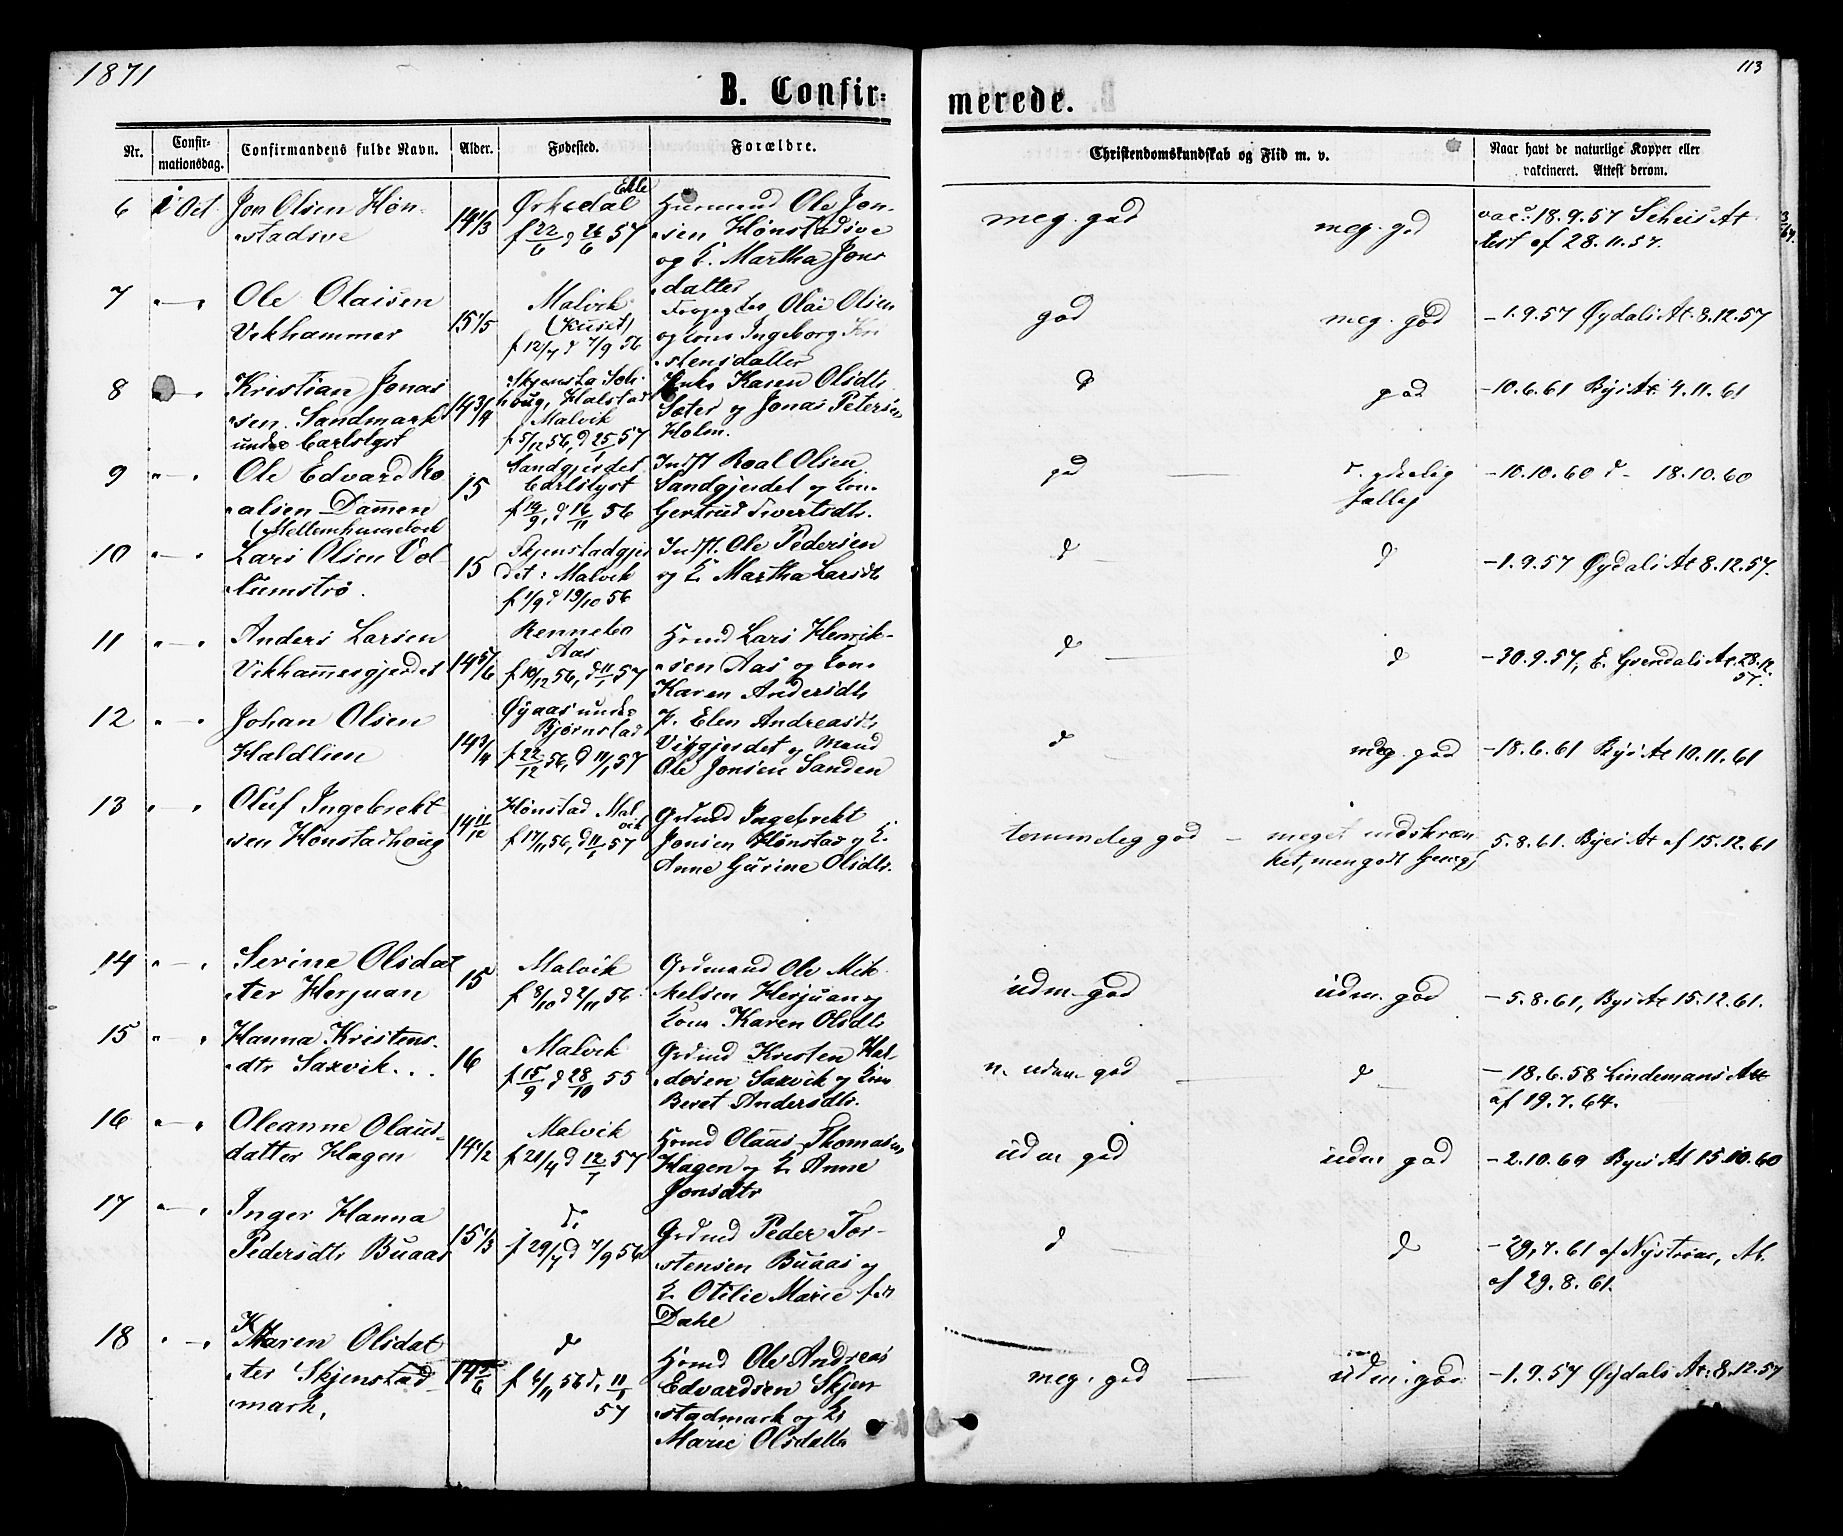 1871
113
B. Confir=
merede.
Nr.
Confir-
mationsdag.
Confirmandens fulde Navn.
Alder.
Fødested.
Forældre.
Christendomskundskab og Flid m. v.
Naar havt de naturlige Kopper eller
vakcineret. Attest derom.
6 1 Oct. Jon Olsen Høn-
stadsve
14 1/3
Ørkedal
f 22/6 d 26/6 57
Huusmand Ole Jon-
sen Hønstadsve
og K. Martha Jons
datter
meg. god
meg. god
vac. 18.9.57 Scheis At
test af 28.11.57.
7 " — " Ole Olaisen
Vikhammer
15 1/5
Malvik
f 12/7 d 7/9 56
Olai Olsen
og Kone Ingeborg Kri
stensdatter
god
meg. god
- 1.9.57 Øydals At. 8.12.57
8 — " Kristian Jonas
sen Sandmark
under Carlslyst
14 3/4
Malvik
f 5/12 56, d 25/1 57
Enke Karen Olsdtr
Sæter og Jonas Petersen
Holm.
d
god
- 10.6.61 Byes At. 4.11.61
9 " — " Ole Edvard Ro
alsen Dammen
15
Sandgjerdet
Carlslyst
f 14/9, d 16/11 56
Indst Roal Olsen
Sandgjerdet og Kone
Gertrud Sivertsdtr.
god —
- 10.10.60 d - 18.10.60
10 " — " Lars Olsen Val
lumstrø.
15
Skjenstadgjer
det i Malvik
f 1/9 d 19/10 56
Indst. Ole Pedersen
og K Martha Larsdtr
d
d
- 1.9.57 Øydals At 8.12.57.
11 " — " Anders Larsen
Vikhammergjerdet
14 5/6
Rennebo
Aas
f 10/12 56, d 11/1 57
Hmnd Lars Henrik-
sen Aas og Kone
Karen Andersdtr
d —
d
- 30.9.57, E. Grendals At. 28.12.
57.
12 " — " Johan Olsen
Haldlien
14 3/4
Øyaas under
Bjørnstad
f 22/12 56, d 11/1 57
P. Elen Andreasdtr
Viggjerdet og Mand
Ole Jonsen Sanden
d
meg. god
- 18.6.61 Byes At 10.11.61
13 " " Oluf Ingebrekt
sen Hønstadhoug
14 11/12
Hønstad Mal
vik
f 17/11 56, d 11/1 57
Grdmd Ingebrekt
Jonsen Hønstad og K.
Anne Gurine Olsdtr.
temmelig god —
meget indskræn
ket, men godt
5.8.61. Byes At af 15.12.61
14 " — " Serine Olsdat
ter Herjuan
15
Malvik
f 8/10 d 2/11 56
Grdmand Ole Mik
kelsen Herjuan og
Kone Karen Olsdtr
udm. god
udm. god
- 5.8.61, Byes At 15.12.61.
15 " — " Hanna Kristens-
dtr Saxvik...
16
Malvik
f 15/9 d 28/10 55
Grdmd Kristen Hal-
dosen Saxvik og Kone
Beret Andersdtr.
n. udm. god —
d —
- 18.6.58 Lindemans Att
af 19.7.64.
16 " — " Oleanne Olaus-
datter Hagen
14 1/2
Malvik
f 21/4 d 12/7 57
Hmnd Olaus Thomasen
Hagen og K Anne
Jonsdtr
udm god
udm god
- 2.10.60 Byes At 15.10.60
17 " — " Inger Hanna
Pedersdtr Buaas
15 1/3
d.
f 29/7 d 7/9 56
Grdmd Peder Tor-
stensen Buaas og
K Otilie Marie f.
Dahl
d —
d
- 29.7.61 af Nystrøm, At.
af 29.8.61.
18 " — " Karen Olsdat
ter Skjenstad
mark,
14 5/6
d
f 6/11 56 d. 11/1
57
Hmnd Ole Andreas
Edvardsen Skjen
stadmark og K
Marie Olsdatter
meg. god —
udm. god
- 1.9.57 Øydals At. 8.12.57